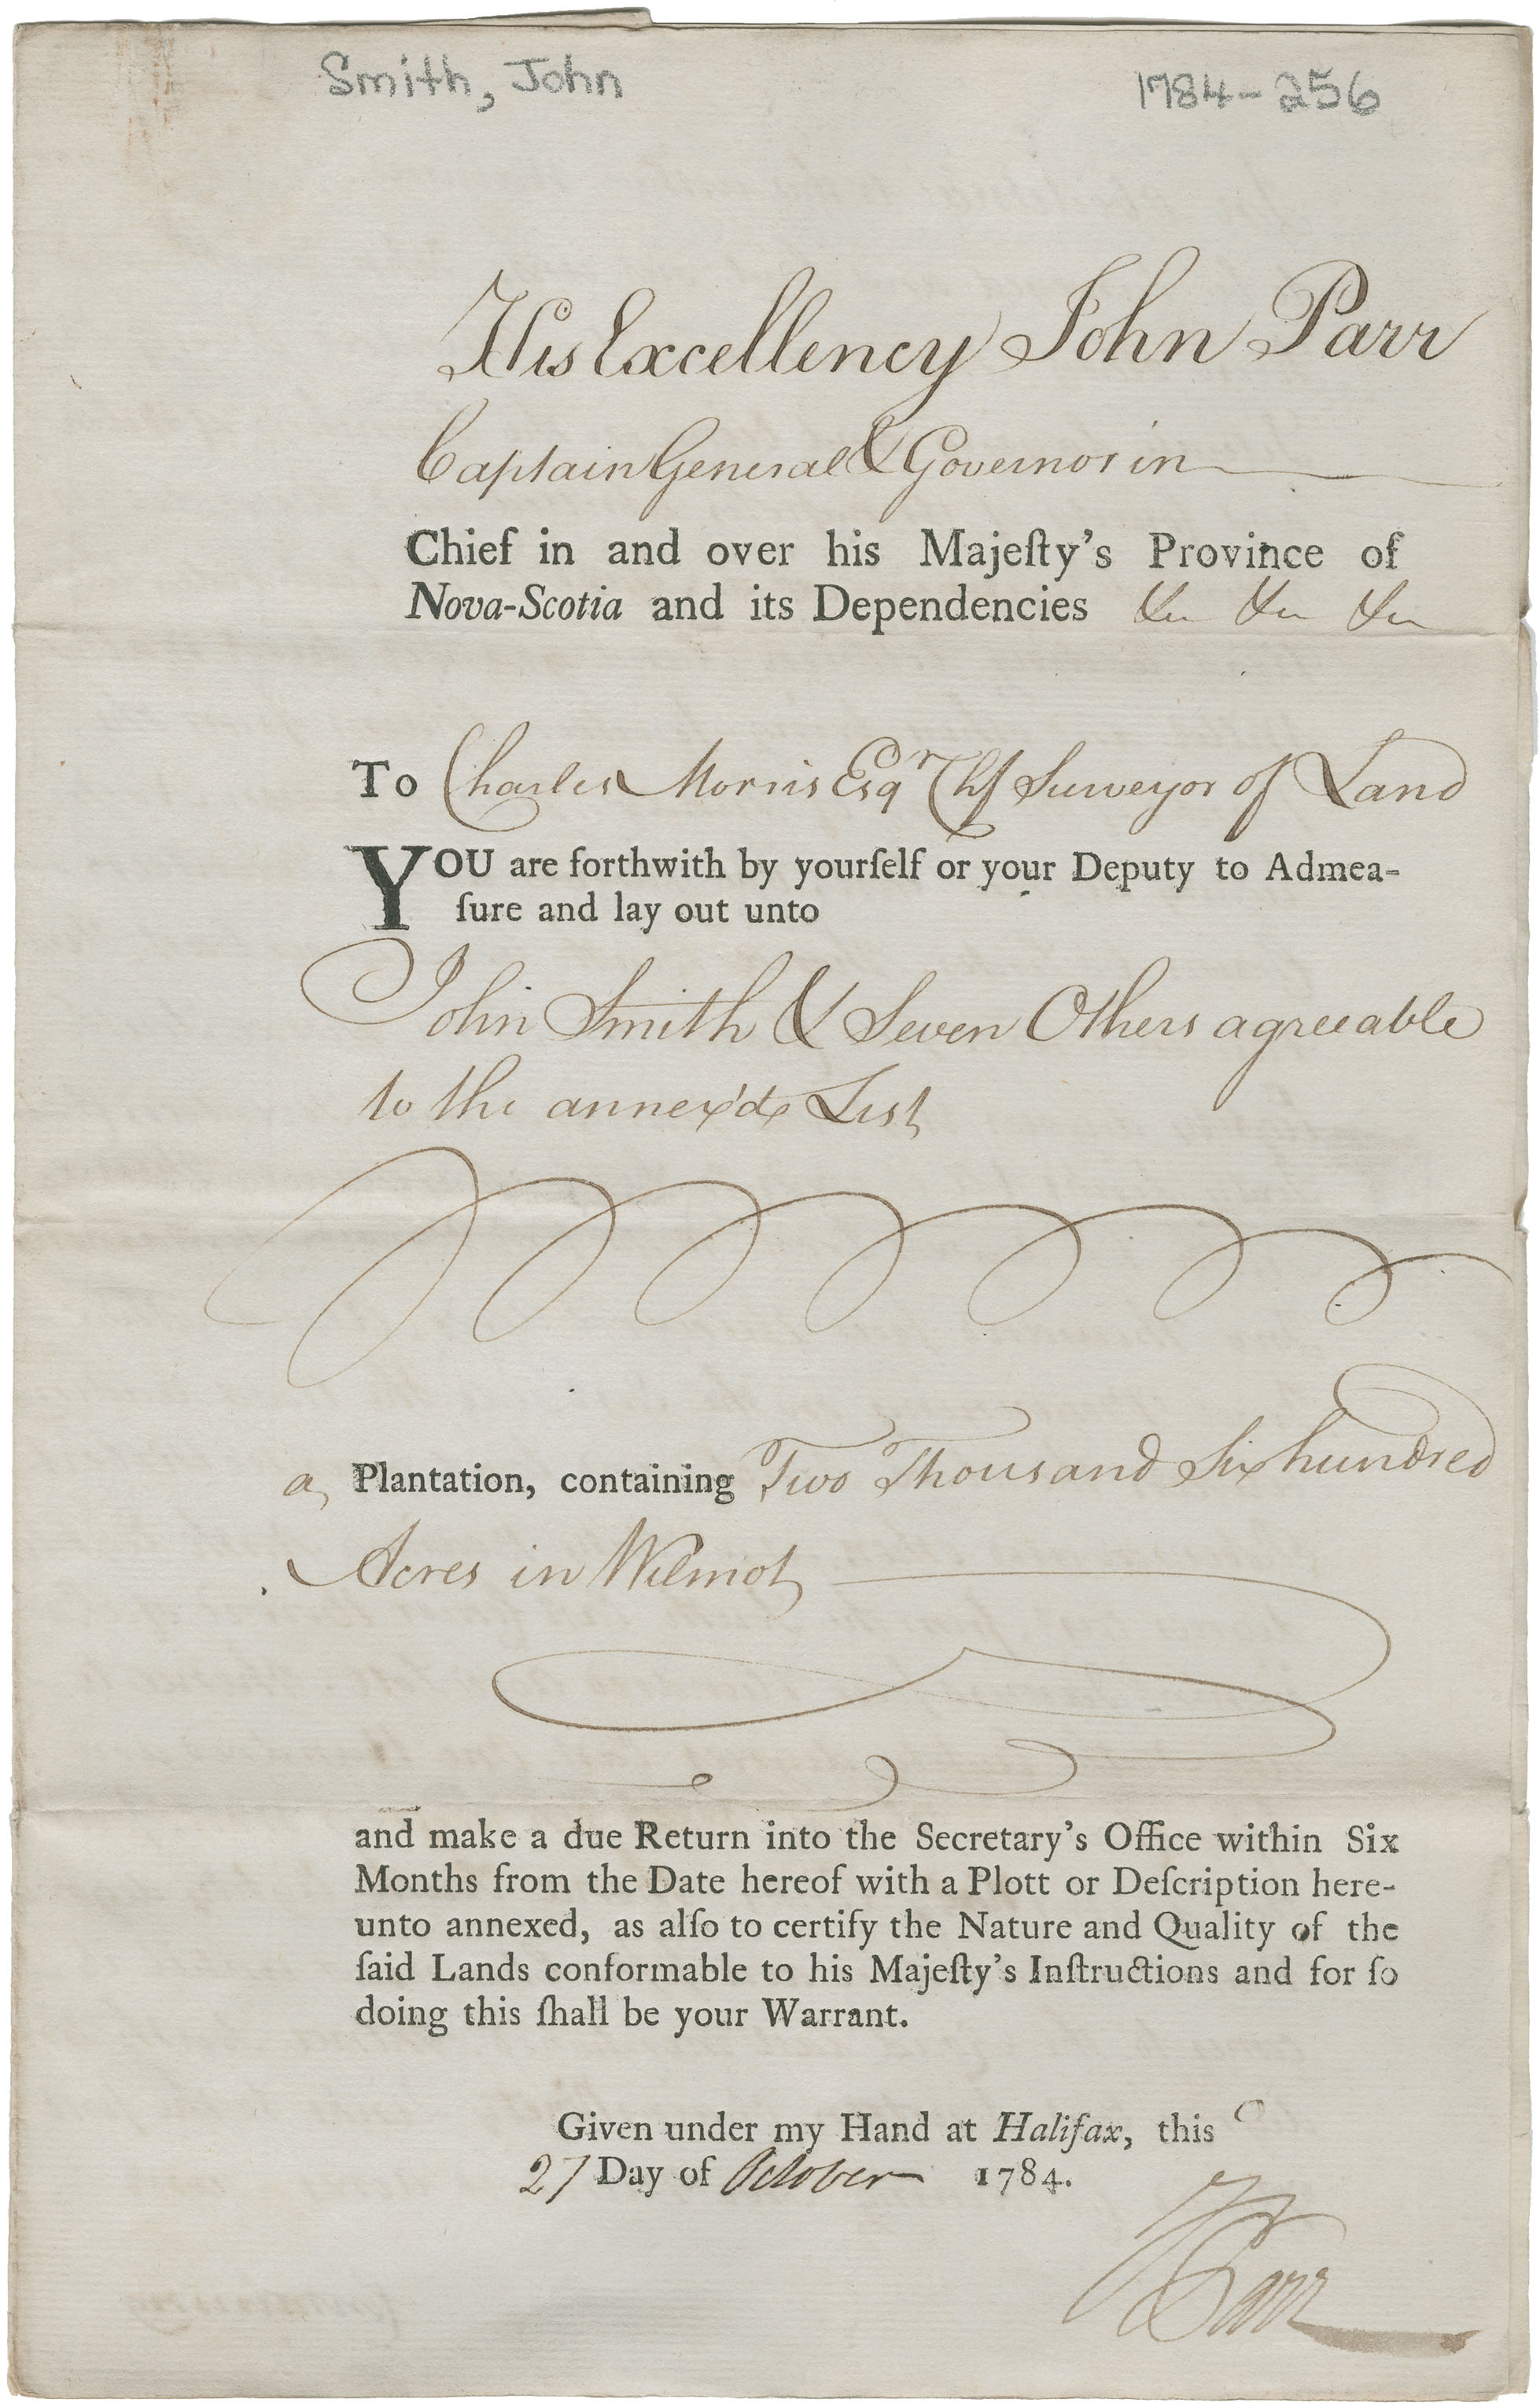 Smith, John 1784-256
His Excellency John Parr
Captain General & Governor in
Chief in and over his Majeſty's Province of
Nova-Scotia and its Dependencies &c &c &c
To Charles Morris Esqr Chf Surveyor of Land
YOU are forthwith by yourſelf or your Deputy to Admea-
ſure and lay out unto
John Smith & Seven Others agreeable
to the annex'd List
a Plantation, containing Two Thousand Six hundred
Acres in Wilmot
and make a due Return into the Secretary's Office within Six
Months from the Date hereof with a Plott or Deſcription here-
unto annexed, as alſo to certify the Nature and Quality of the
ſaid Lands conformable to his Majeſty's Inſtructions and for ſo
doing this ſhall be your Warrant.
Given under my Hand at Halifax, this
27 Day of October 1784.
J Parr